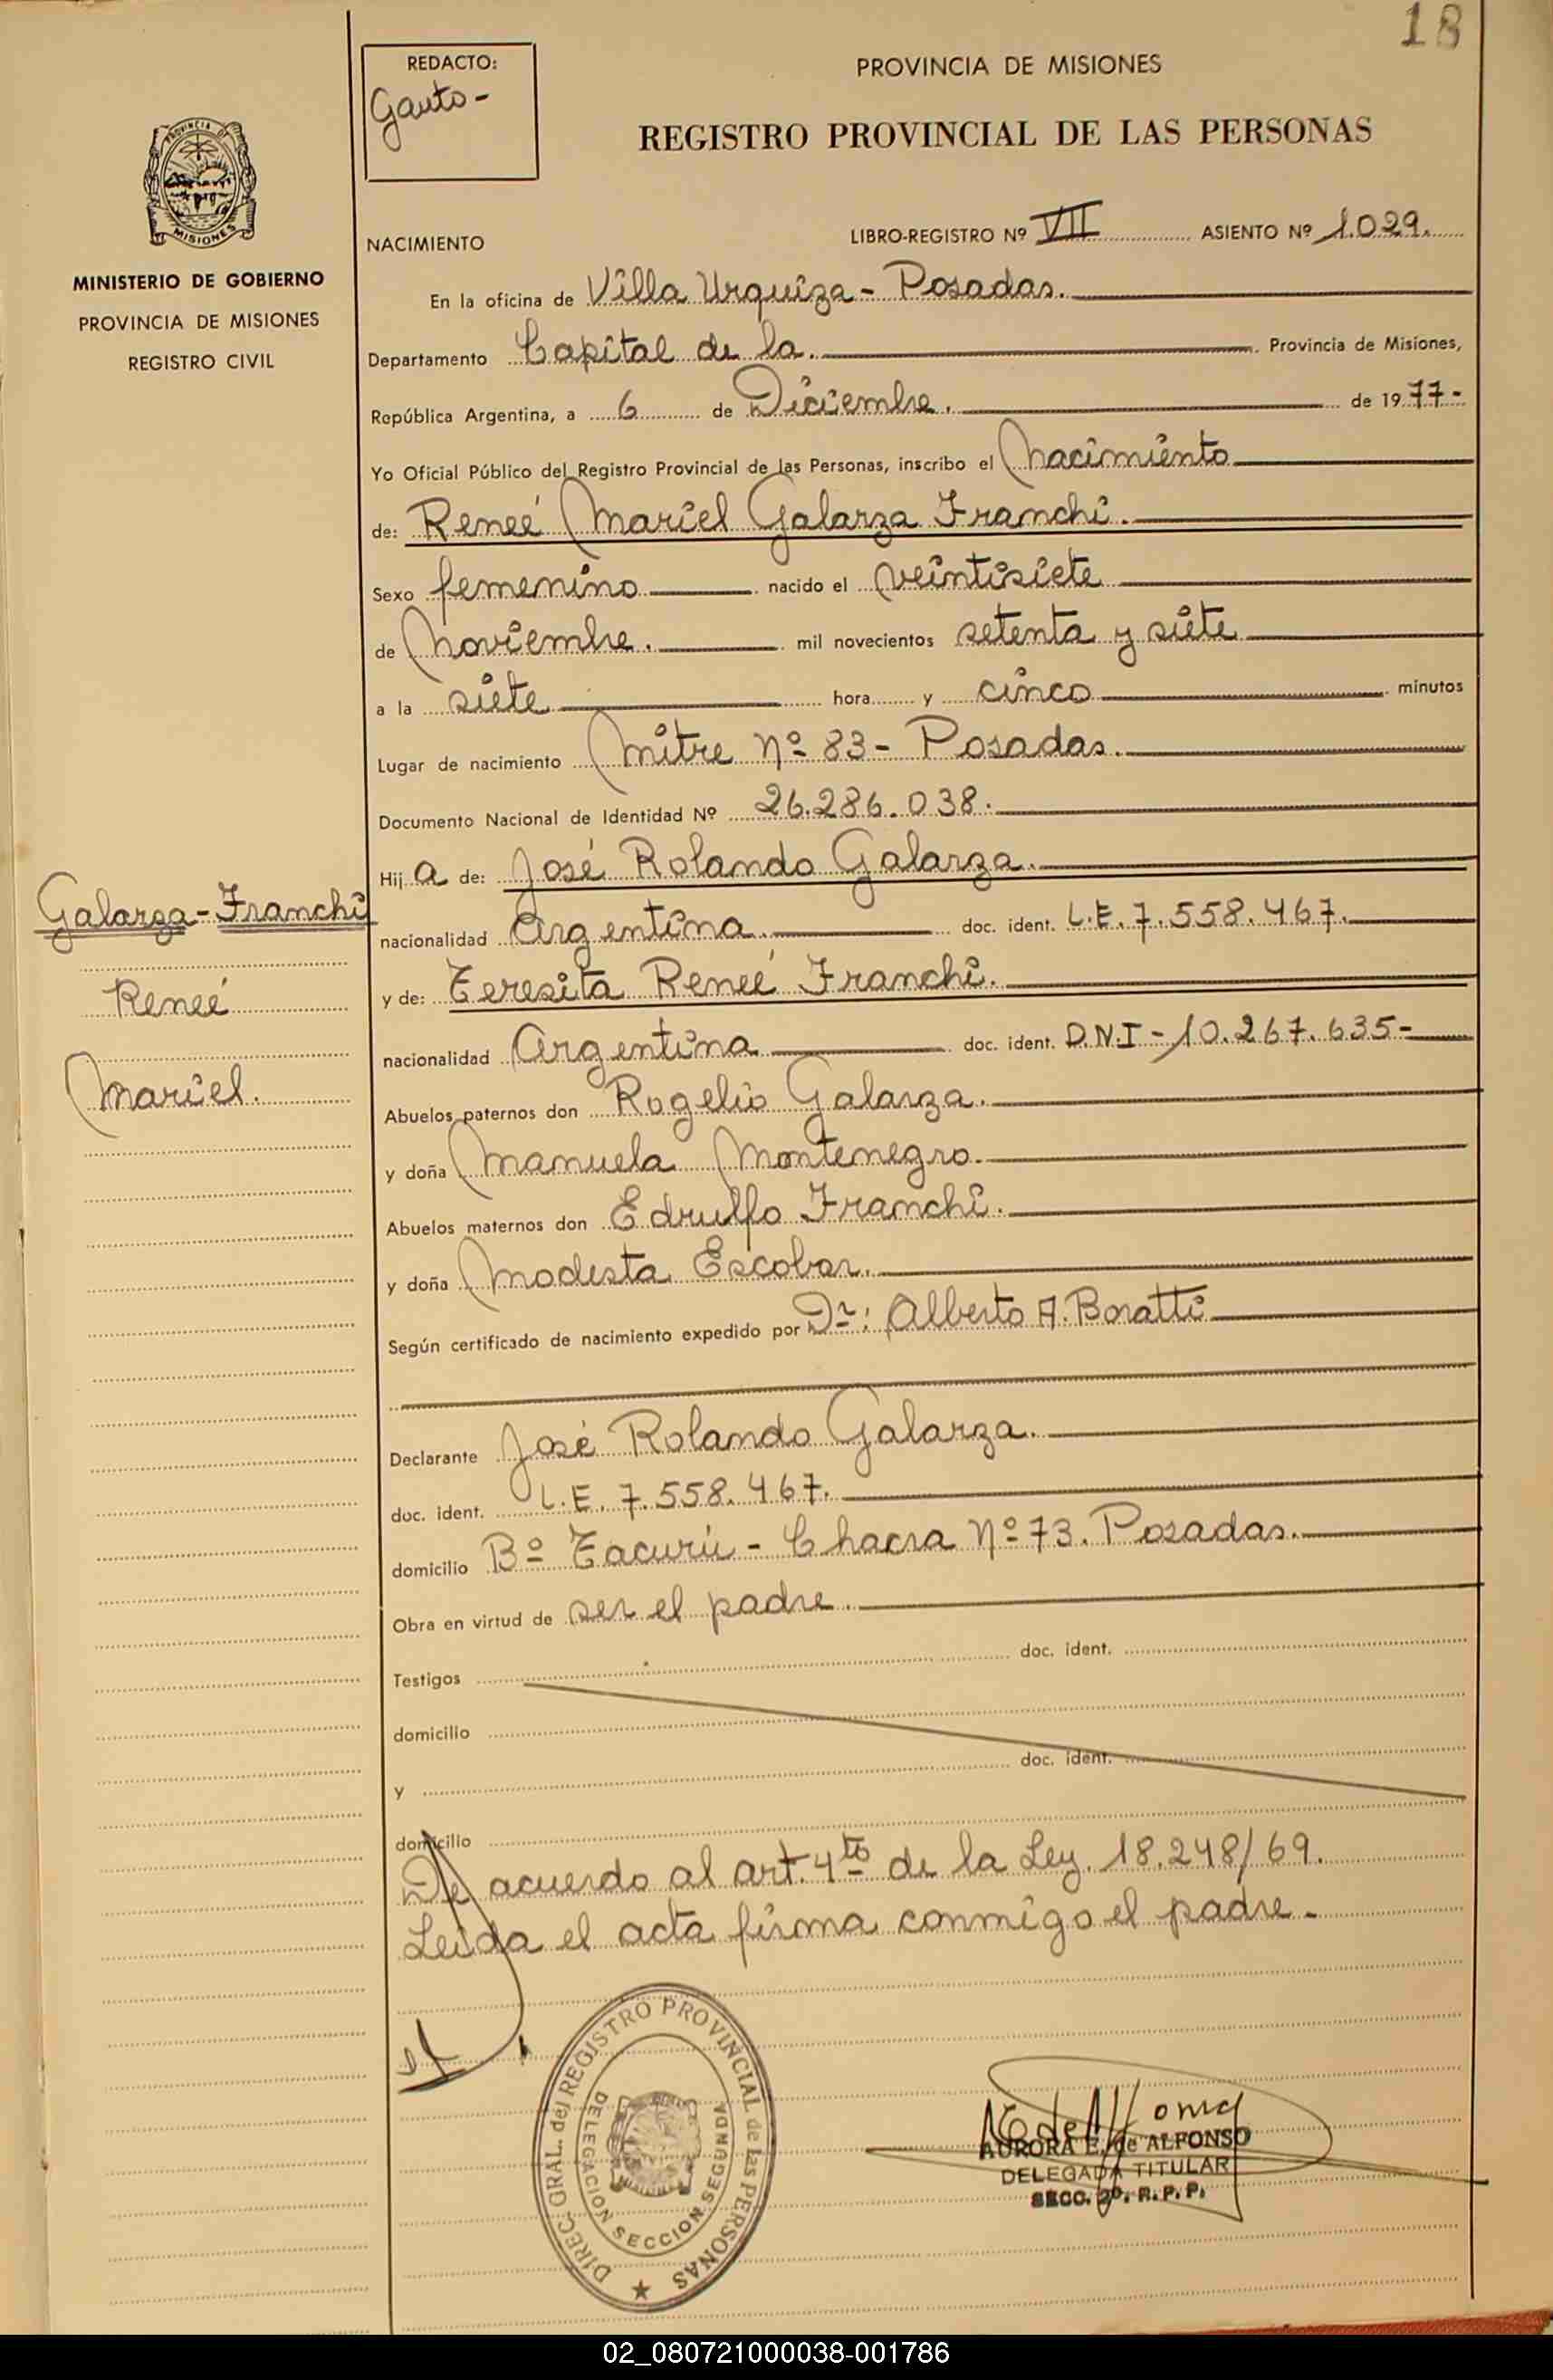 18
REDACTO:
Gauto-
PROVINCIA DE MISIONES
REGISTRO PROVINCIAL DE LAS PERSONAS
PROVINCIA
MISIONES
MINISTERIO DE GOBIERNO
PROVINCIA DE MISIONES
REGISTRO CIVIL
NACIMIENTO
LIBRO-REGISTRO Nº VII ASIENTO Nº 1.029.
En la oficina de Villa Urquiza - Posadas.
Departamento Capital de la. Provincia de Misiones,
República Argentina, a 6 de Diciembre. de 1977-
Yo Oficial Público del Registro Provincial de las Personas, inscribo el Nacimiento
de: Reneé Mariel Galarza Franchi.
Sexo femenino nacido el veintisiete
de Noviembre. mil novecientos setenta y siete
a la siete hora y cinco minutos
Lugar de nacimiento Mitre Nº 83 - Posadas.
Documento Nacional de Identidad Nº 26.286.038.
Hija de: José Rolando Galarza.
nacionalidad Argentina. doc. ident. L.E. 7.558.467.
y de: Teresita Reneé Franchi.
nacionalidad Argentina doc. ident. D.N.I - 10.267.635-
Abuelos paternos don Rogelio Galarza.
y doña Manuela Montenegro.
Abuelos maternos don Edrulfo Franchi.
y doña Modesta Escobar.
Según certificado de nacimiento expedido por Dr: Alberto A. Boratti
Declarante José Rolando Galarza.
doc. ident. L.E. 7.558.467.
domicilio Bº Tacurú - Chacra Nº 73. Posadas.
Obra en virtud de ser el padre.
Testigos doc. ident.
domicilio
y doc. ident.
domicilio
De acuerdo al art. 4to de la Ley. 18.248/69.
Leída el acta firma conmigo el padre.
Galarza-Franchi
Reneé
Mariel.
DIREC. GRAL. del REGISTRO PROVINCIAL de las PERSONAS
DELEGACION SECCION SEGUNDA
AURORA E. de ALFONSO
DELEGADA TITULAR
SECC. 2º. R.P.P.
02_080721000038-001786